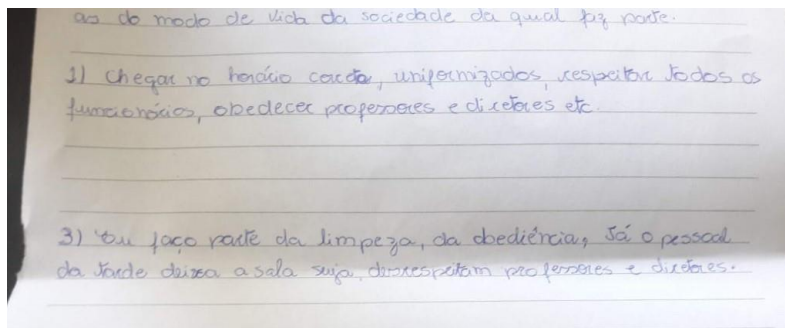 as do modo de vida da sociedade da qual faz parte.
1) Chegar no horário correto, uniformizados, respeitar todos os
funcionários, obedecer professores e diretores etc.
3) Eu faço parte da limpeza, da obediência, Já o pessoal
da tarde deixa a sala suja, desrespeitam professores e diretores.